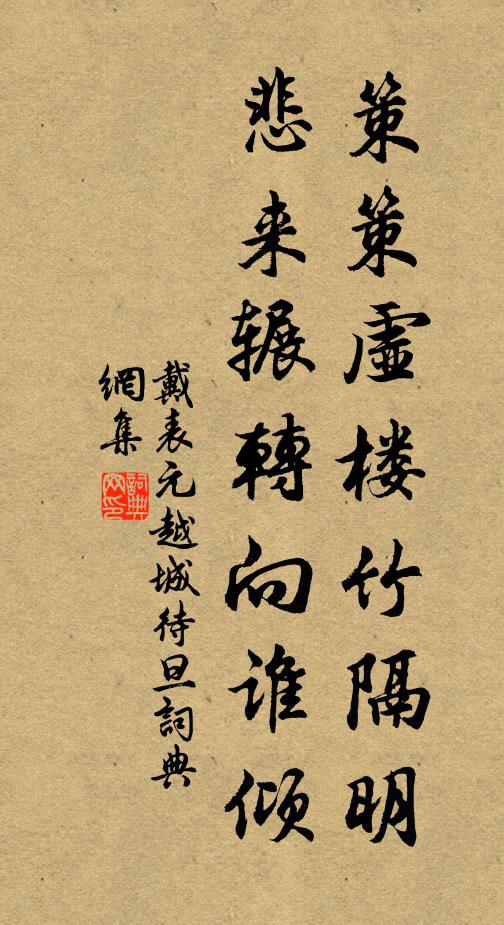 策策虚楼竹隔明
悲来辗轉向谁倾
戴表元越城待旦詞典
網集
詞典
网印